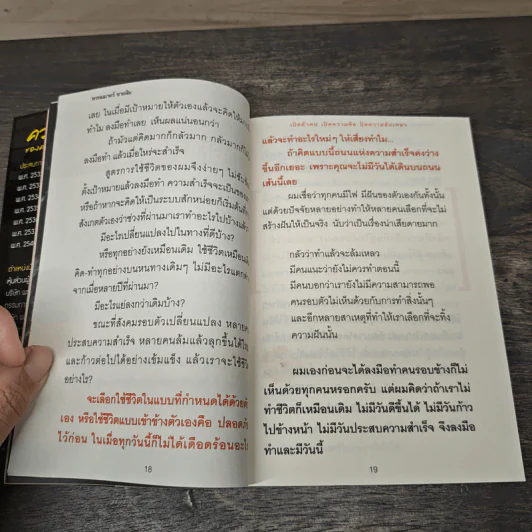 พรหมมาตร์ ชายสิม
เลย ในเมื่อมีเป้าหมายให้ตัวเองแล้วจะคิดให้มาก
ทำไม ลงมือทำเลย เห็นผลแน่นอนกว่า
ถ้ามัวแต่คิดมากก็กลัวมาก กลัวมากก็ไม่
ลงมือทำ แล้วเมื่อไหร่จะสำเร็จ
สูตรการใช้ชีวิตของผมจึงง่ายๆ ไม่ซับซ้อน
ตั้งเป้าหมายแล้วลงมือทำ ความสำเร็จจะเป็นของ
หรือถ้าหากจะคิดให้เป็นระบบสักหน่อยก็เริ่มต้น
สังเกตตัวเองว่าช่วงที่ผ่านมาเราทำอะไรไปบ้างแล้ว
มีอะไรเปลี่ยนแปลงไปในทางที่ดีบ้าง?
หรือทุกอย่างยังเหมือนเดิม ใช้ชีวิต
คิด-ทำทุกอย่างบนหนทางเดิมๆ ไม่มีอะไรแตก
จากเมื่อหลายปีที่ผ่านมา?
มีอะไรแย่ลงกว่าเดิมบ้าง?
ขณะที่สังคมรอบตัวเปลี่ยนแปลง หลาย
ประสบความสำเร็จ หลายคนล้มแล้วลุกขึ้นได้
และก้าวต่อไปได้อย่างเข้มแข็ง แล้วเราจะใช้ชีวิต
อย่างไร?
จะเลือกใช้ชีวิตในแบบที่กำหนดได้ด้วยตัว
เอง หรือใช้ชีวิตแบบเข้าข้างตัวเองคือ ปลอดภัย
ไว้ก่อน ในเมื่อทุกวันนี้ก็ไม่ได้เดือดร้อนอะไร
18
เปิดตัวตน เปิดความคิด ปิดความล้มเหลว
แล้วจะทำอะไรใหม่ๆ ให้เสี่ยงทำไม...
ถ้าคิดแบบนี้ถนนแห่งความสำเร็จคงว่าง
ขึ้นอีกเยอะ เพราะคุณจะไม่มีวันได้เดินบนถนน
เส้นนี้เลย
ผมเชื่อว่าทุกคนมีไฟ มีฝันของตัวเองกันทั้งนั้น
แต่ด้วยปัจจัยหลายอย่างทำให้หลายคนเลือกที่จะไม่
สร้างฝันให้เป็นจริง นับว่าเป็นเรื่องน่าเสียดายมาก
กลัวว่าทำแล้วจะล้มเหลว
มีคนแนะว่ายังไม่ควรทำตอนนี้
มีคนบอกว่าเรายังไม่มีความสามารถพอ
คนรอบตัวไม่เห็นด้วยกับการทำสิ่งนั้นๆ
และอีกหลายสาเหตุที่ทำให้เราเลือกที่จะทิ้ง
ความฝันนั้น
ผมเองก่อนจะได้ลงมือทำคนรอบข้างก็ไม่
เห็นด้วยทุกคนหรอกครับ แต่ผมคิดว่าถ้าเราไม่
ทำชีวิตก็เหมือนเดิม ไม่มีวันดีขึ้นได้ ไม่มีวันก้าว
ไปข้างหน้า ไม่มีวันประสบความสำเร็จ จึงลงมือ
ทำและมีวันนี้
19